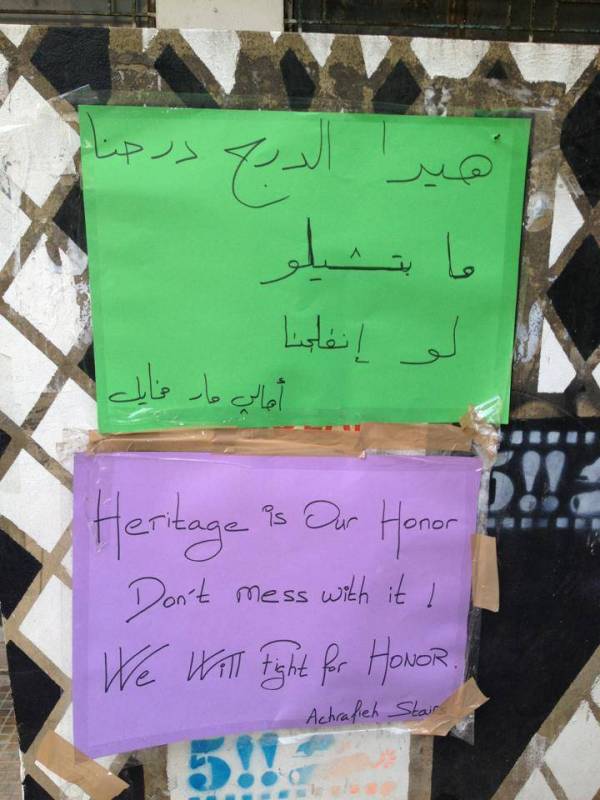 هيدا الدرج درجنا
ما بتشيلو
لو إنفلجنا
أهالي مار مخايل
Heritage is Our Honor
Don't mess with it !
We Will Fight for HONOR.
Achrafieh Stair
5!!
5!!